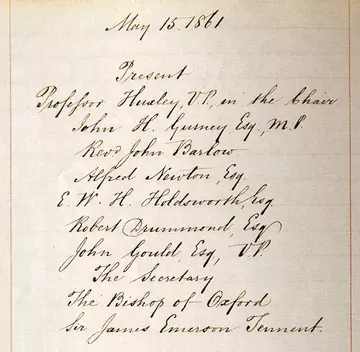 May 15. 1861
Present
Professor Huxley, V.P. in the Chair
John H. Gurney Esq., M.P.
Revd John Barlow
Alfred Newton, Esq.
E. W. H. Holdsworth, Esq
Robert Drummond, Esq
John Gould, Esq, V.P.
The Secretary
The Bishop of Oxford
Sir James Emerson Tennent.